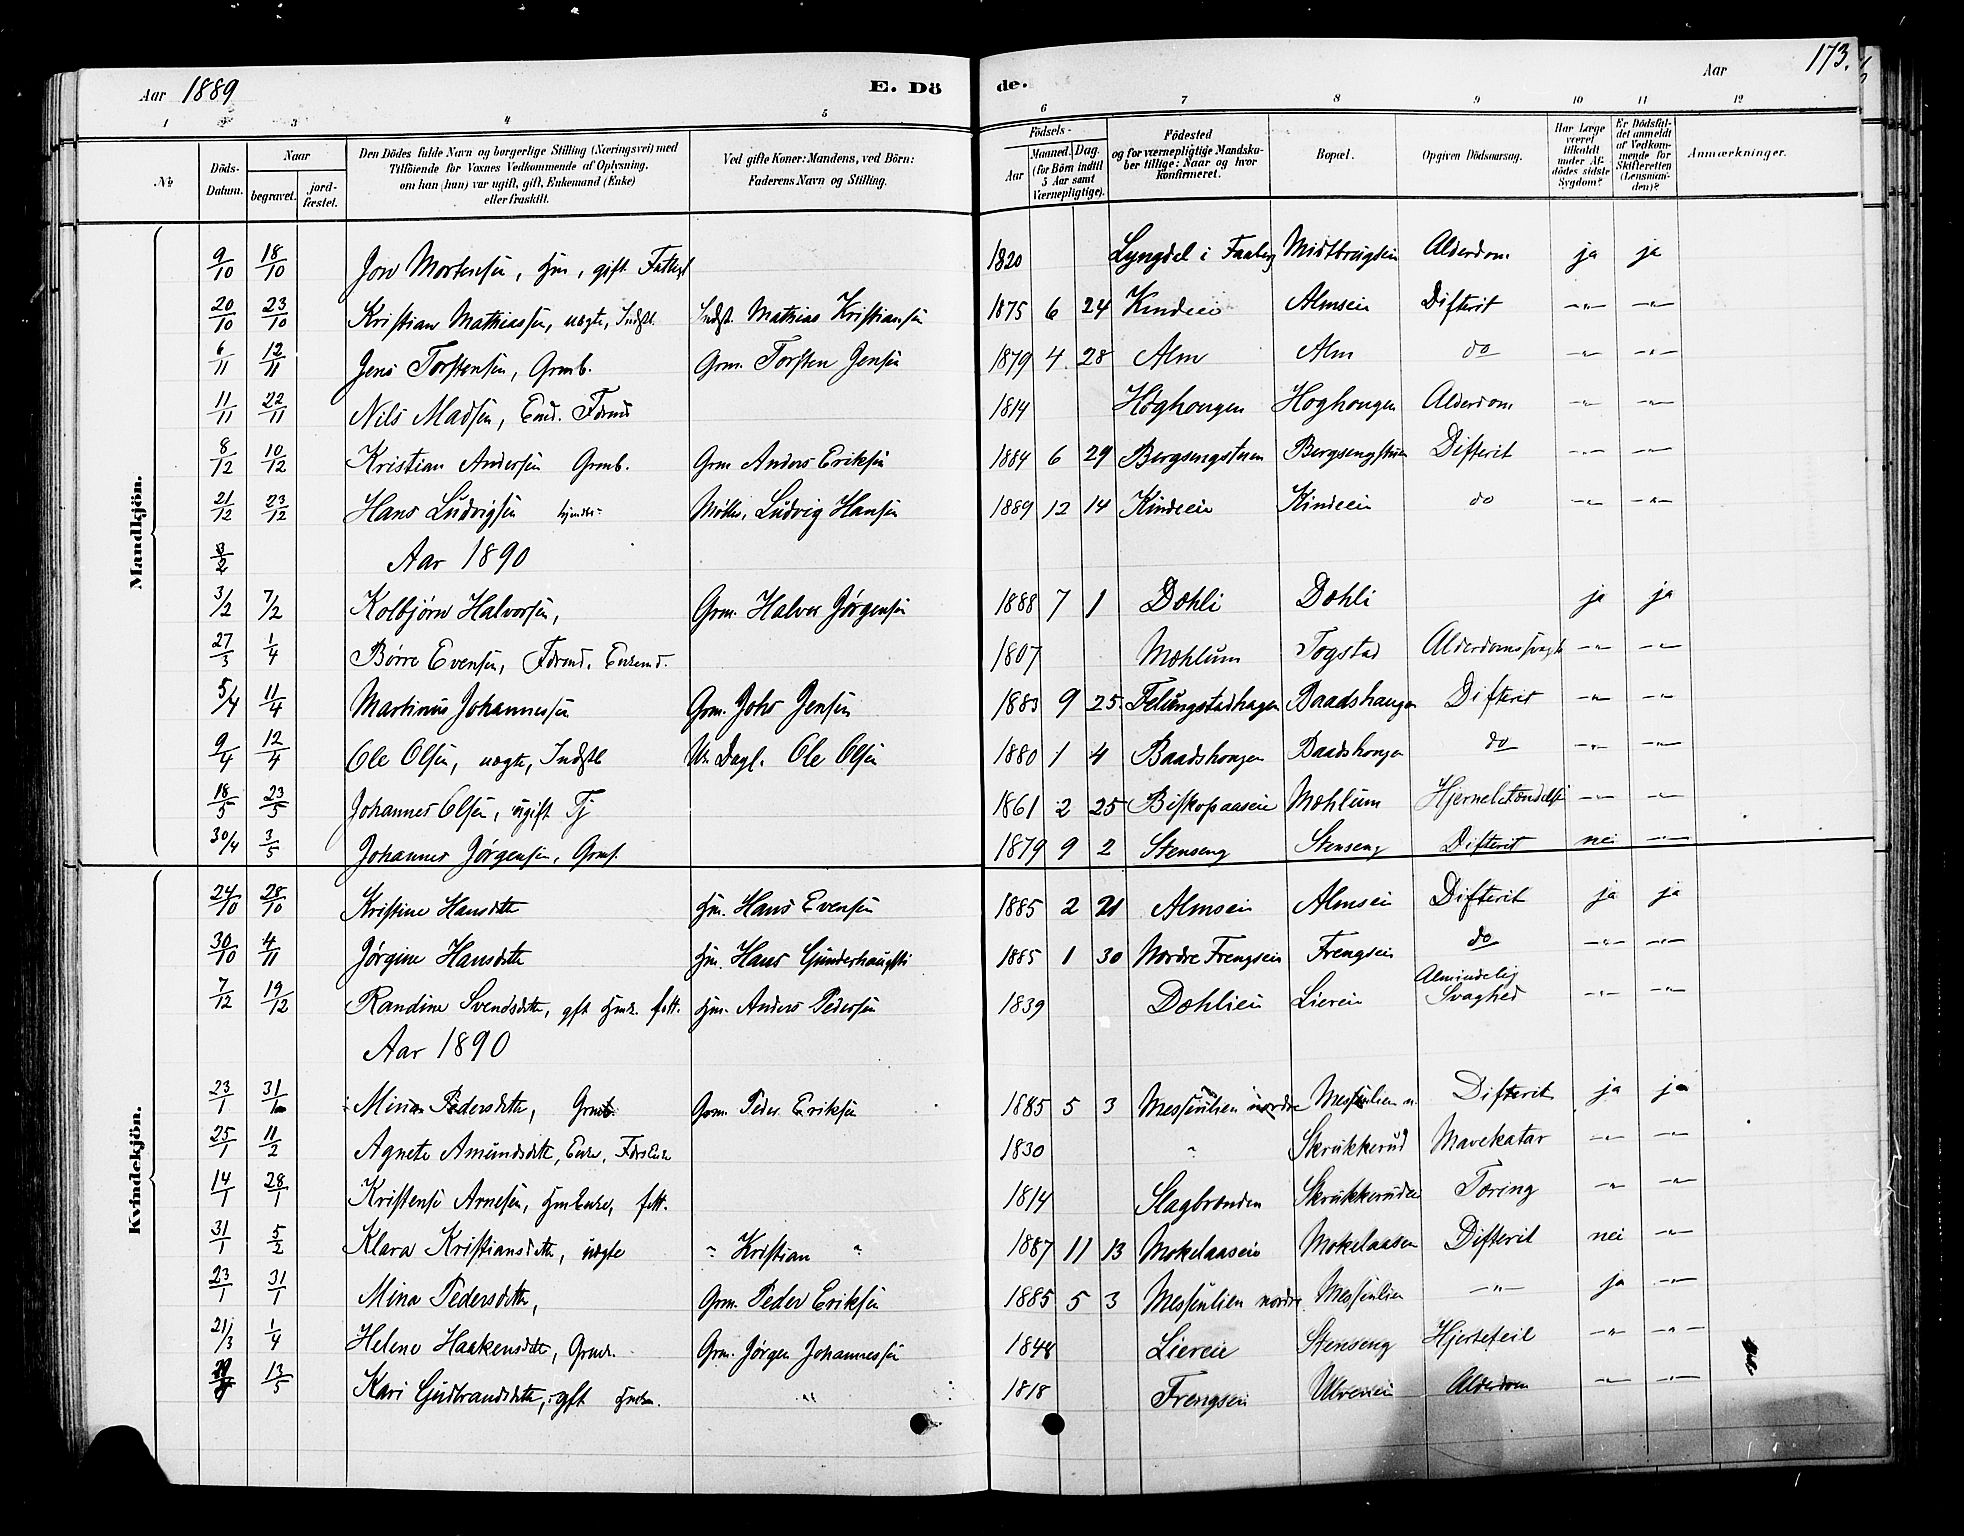 Aar 1889 E. Dö de. Aar 173.
1 2 3 4 5 6 7 8 9 10 11 12
№ Döds-Datum. Naar begravet. jordfæstet. Den Dödes fulde Navn og borgerlige Stilling (Næringsvei) med Tilföiende for Voxnes Vedkommende af Oplysning, om han (hun) var ugift, gift, Enkemand (Enke) eller fraskilt. Ved gifte Koner: Mandens, ved Börn: Faderens Navn og Stilling. Födsels- Aar Maaned. Dag. (for Börn indtil 5 Aar samt Værnepligtige). Födested og for værnepligtige Mandskaber tillige: Naar og hvor Konfirmeret. Bopæl. Opgiven Dödsaarsag. Har Læge været tilkaldt under Afdödes sidste Sygdom? Er Dödsfaldet anmeldt af Vedkommende for Skifteretten (Lensmanden)? Anmærkninger.
Mandkjön.
9/10 18/10 Jon Mortensen, Hm, gift 1820 Lyngdel i Faaberg Midtbrugsein Alderdom ja ja
20/10 23/10 Kristian Mathiassen, uægte, Indst. Indst. Mathias Kristiansen 1875 6 24 Kindeie Almseie Difterit -"- -"-
6/11 12/11 Jens Torstensen, Grmb. Grm. Torsten Jensen 1879 4 28 Alm Alm do -"- -"-
11/11 22/11 Nils Madsen, Enk. Fdrmd 1814 Høghougen Hoghougen Alderdom -"- -"-
8/12 10/12 Kristian Andersen Grmb. Grm Anders Eriksen 1884 6 29 Bergsengstuen Bergsengstuen Difterit -"- -"-
21/12 23/12 Hans Ludvigsen Møller, Ludvig Hansen 1889 12 14 Kindeeie Kindeein do -"- -"-
Aar 1890
3/2 7/2 Kolbjørn Halvorsen, Grm. Halvor Jørgensen 1888 7 1 Dæhli Dæhli ja ja
27/3 1/4 Børre Evensen, Fdrmd. Enkemd. 1807 Mæhlum Togstad Alderdomssvagh -"- -"-
5/4 11/4 Martinus Johannessen Grm. Johs Jensen 1883 9 25 Felungstadhagen Baadshaugen Difterit -"- -"-
9/4 12/4 Ole Olsen, uægte, Indstb Un Dagl. Ole Olsen 1880 1 4 Baadshougen Baadshougen do -"- -"-
18/5 23/5 Johannes Olsen, ugift Tj 1861 2 25 Biskopaaseie Mæhlum Hjernebetændelse -"- -"-
30/4 3/5 Johannes Jørgensen, Grms. 1879 9 2 Stenseng Stenseng Difterit nei -"-
Kvindekjön.
24/10 28/10 Kristine Hansdtr Hm. Hans Evensen 1885 2 21 Almseie Almseie Difterit ja ja
30/10 4/11 Jørgine Hansdtr Hm. Hans Gunderhaugsli 1885 1 30 Nordre Frengseie Frengseie do -"- -"-
7/12 19/12 Randine Svendsdtr, gft Hmk. fatt. Hm. Anders Pedersen 1839 Dæhlieie Liereie Almindelig Svaghed -"- -"-
Aar 1890
23/1 31/1 Mina Pedersdtr, Grmb. Grm. Peder Eriksen 1885 5 3 Messenlien nordre Messenlien n. Difterit ja ja
25/1 11/2 Agnete Amundsdtr, Enke, Fdrs Enke 1830 " Skrukkerud Mavekatar -"- -"-
14/1 28/1 Kristense Arnesen, Hm Enke, fatt. 1814 Slagbrenden Skrukkeruden Tæring -"- -"-
31/1 5/2 Klara Kristiansdtr, uægte " Kristian " 1887 11 13 Mokelaaseie Mokelaasen Difterit nei -"-
23/1 31/1 Mina Pedersdtr, Grm. Peder Eriksen 1885 5 3 Messenlien nordre Messenlien -"- ja -"-
21/3 1/4 Helene Haakensdtr, Grmk. Grm. Jørgen Johannessen 1848 Liereie Stenseng Hjertefeil -"- -"-
13/5 Kari Gudbrandsdtr, gft Hmk. " 1818 Frengseie Ulveneie Alderdom -"- -"-